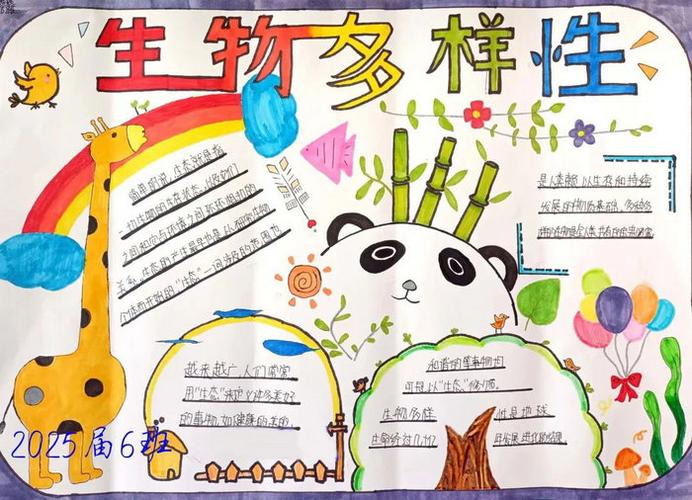 生物多样性
简单的说,生态就是指
一切生物的生存状态,以及它们
之间和它与环境之间环环相扣的
关系,生态的产生最早也是从研究生物
个体而开始的,"生态"一词涉及的范围也
是人类赖以生存和持续
发展的物质基础,
越来越广,人们常常
用"生态"来定义许多美好
的事物,如健康的美的
和谐的等事物均
可冠以"生态"修饰。
生物多样 性是地球
生命经过几亿 年发展进化的结果
2025届6班